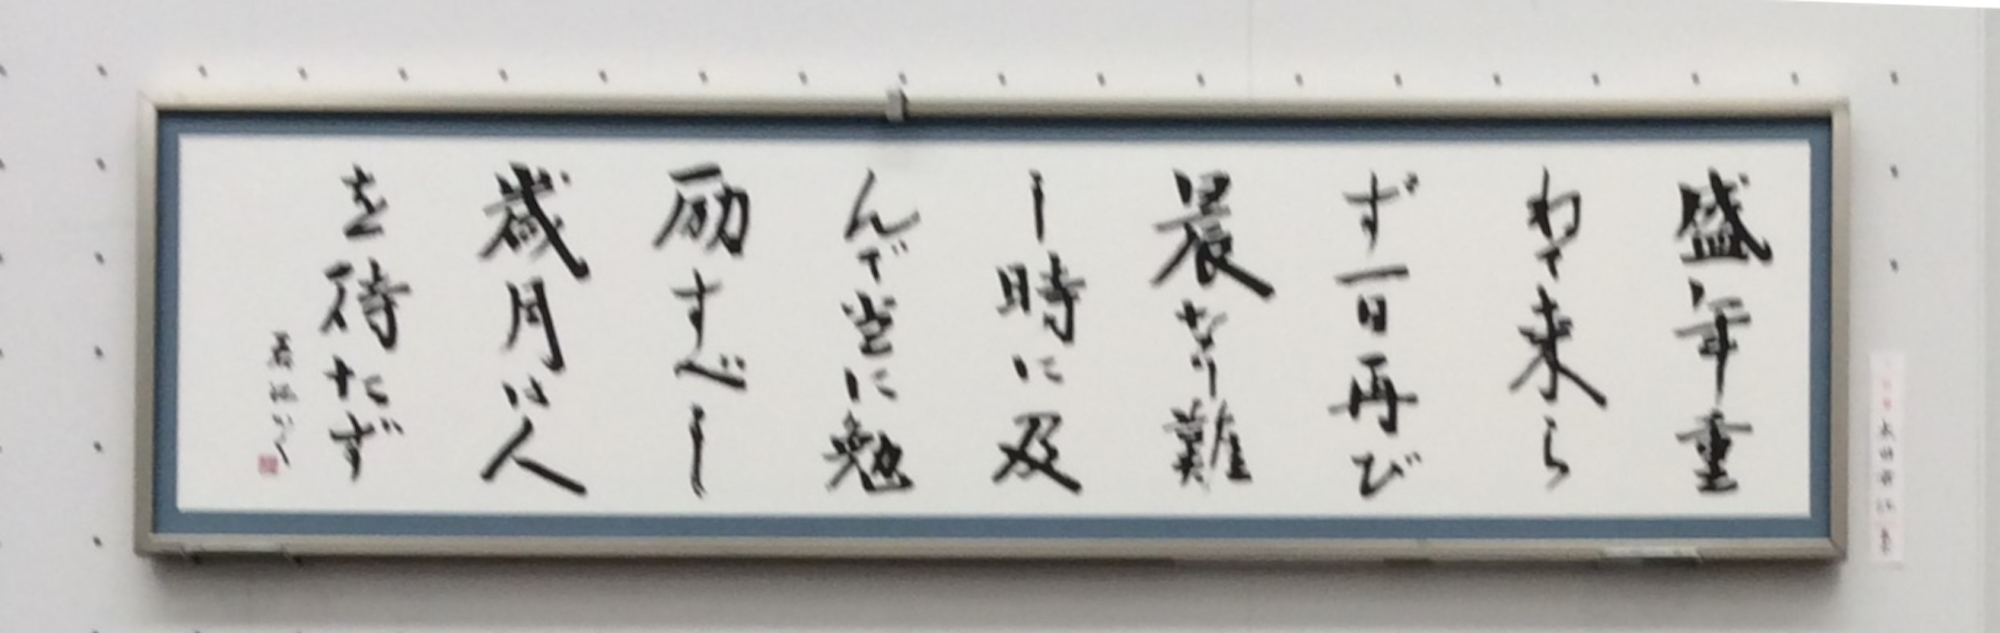 盛年重
ねて来ら
ず一日再び
晨なり難
し時に及
んで当に勉
励すべし
歳月は人
を待たず